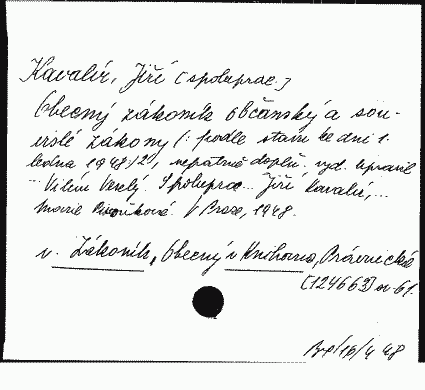 Kavalír, Jiří [spoluprac.]
Obecný zákoník občanský a sou-
vislé zákony (: podle stavu ke dni 1.
ledna 1948:), nepatrně doplň. vyd. Upravil
Vilém Veselý. Spoluprac... Jiří Kavalír,...
Marie V Praze, 1948.
v. Zákoník, Obecný v Knihovna, Právnická
[124663] sv 61.
48